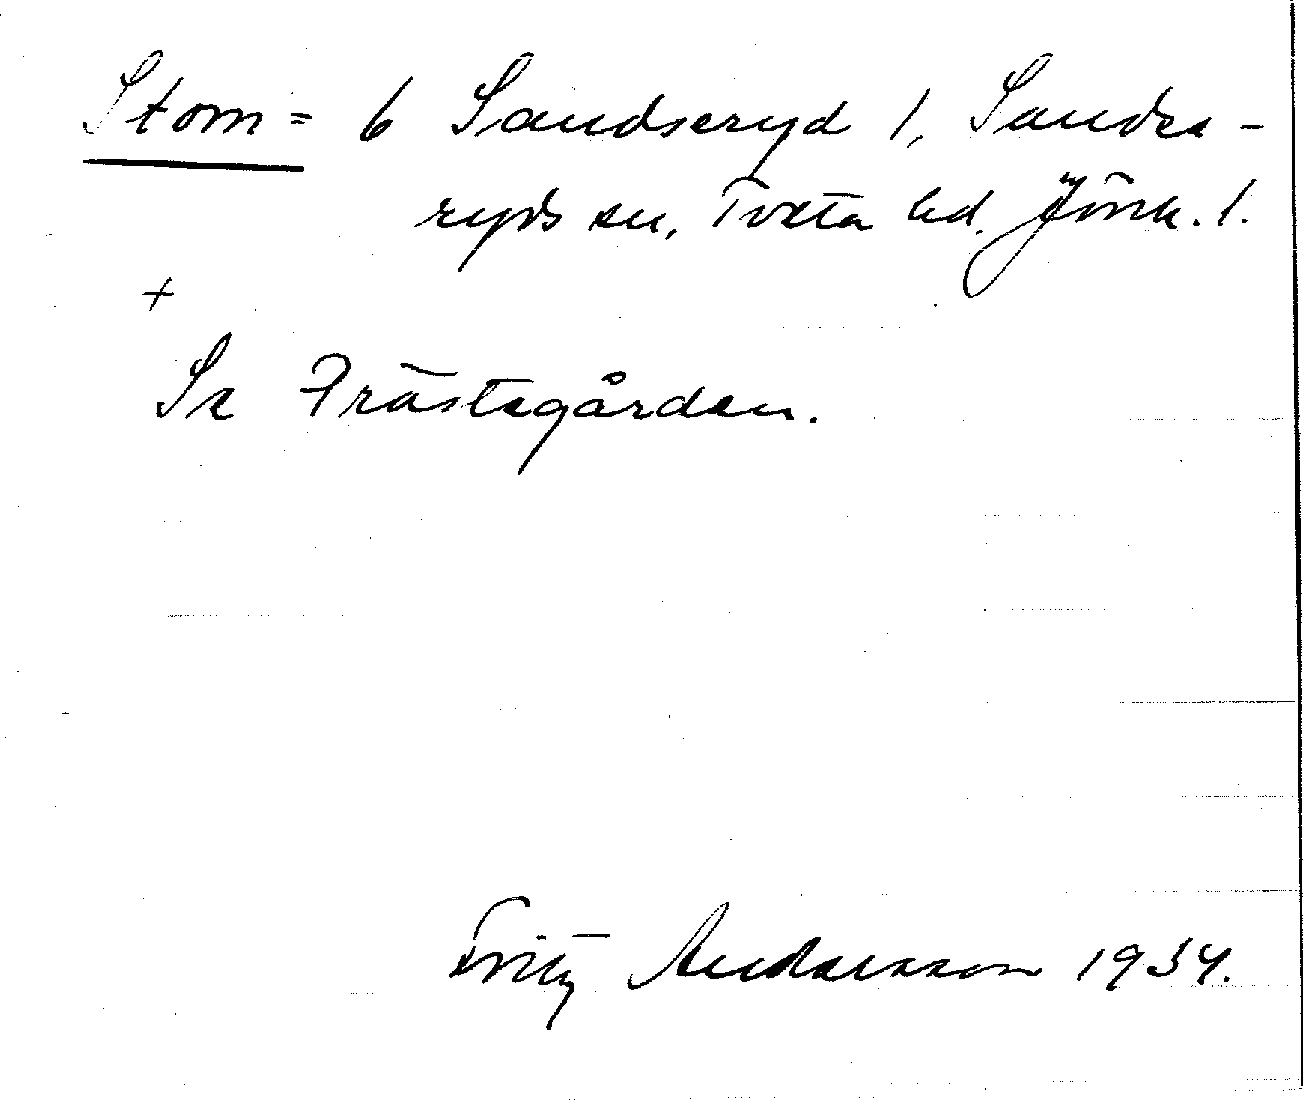 Stom= b Sandseryd 1, Sandse-
ryds sn, Tveta hd. Jönk. l.
+
Se Prästegården.
Fritz Andersson 1934.